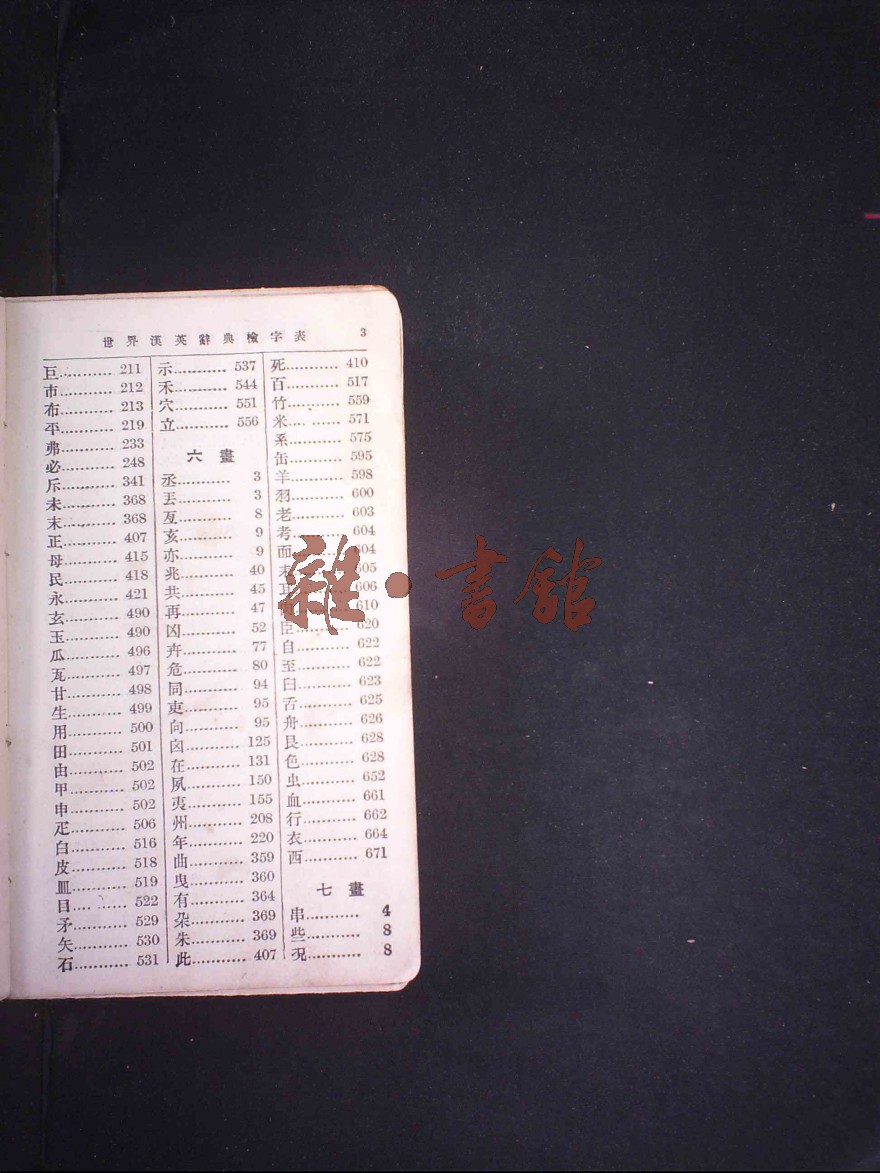 世界漢英辭典檢字表 3
巨........... 211
市........... 212
布........... 213
平........... 219
弗........... 233
必........... 248
斥........... 341
未........... 368
末........... 368
正........... 407
母........... 415
民........... 418
永........... 421
玄........... 490
玉........... 490
瓜........... 496
瓦........... 497
甘........... 498
生........... 499
用........... 500
田........... 501
由........... 502
甲........... 502
申........... 502
疋........... 506
白........... 516
皮........... 518
皿........... 519
目........... 522
矛........... 529
矢........... 530
石........... 531
示........... 537
禾........... 544
穴........... 551
立........... 556
六畫
丞........... 3
丟........... 3
亙........... 8
亥........... 9
亦........... 9
兆........... 40
共........... 45
再........... 47
凶........... 52
卉........... 77
危........... 80
同........... 94
吏........... 95
向........... 95
囟........... 125
在........... 131
夙........... 150
夷........... 155
州........... 208
年........... 220
曲........... 359
曳........... 360
有........... 364
朵........... 369
朱........... 369
此........... 407
死........... 410
百........... 517
竹........... 559
米........... 571
系........... 575
缶........... 595
羊........... 598
羽........... 600
老........... 603
考........... 604
而........... 604
耒........... 605
耳........... 606
........... 610
臣........... 620
自........... 622
至........... 622
臼........... 623
舌........... 625
舟........... 626
艮........... 628
色........... 628
虫........... 652
血........... 661
行........... 662
衣........... 664
西........... 671
七畫
串........... 4
些........... 8
........... 8
雜·書館